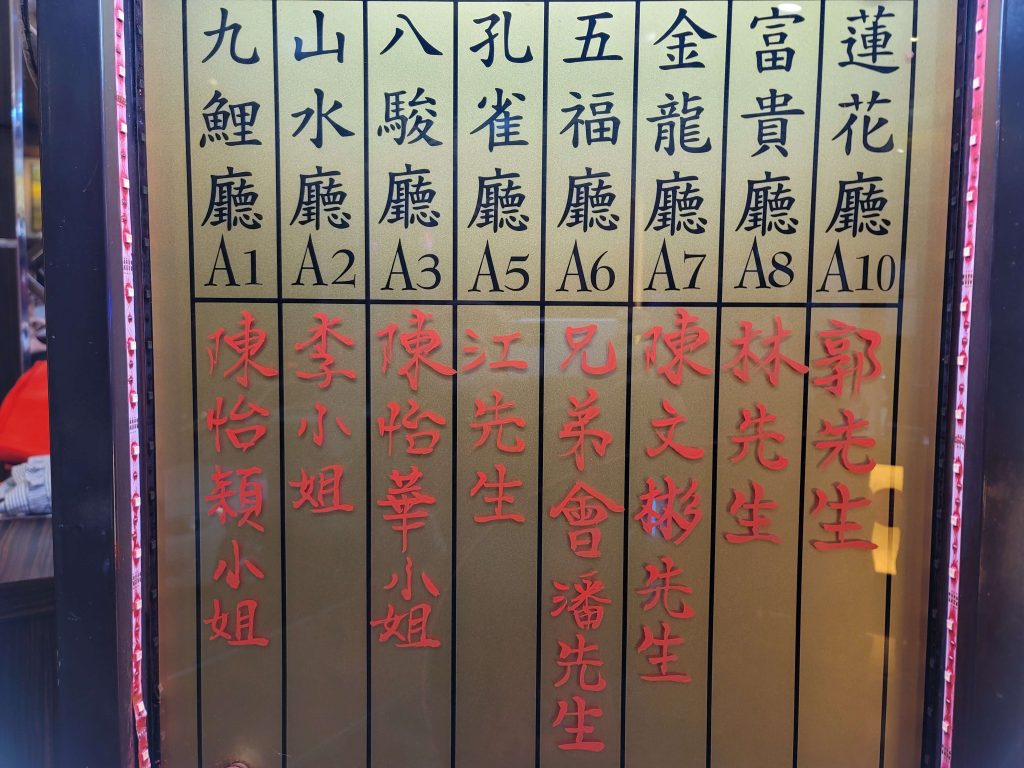 九鯉廳
A1
陳怡穎小姐
山水廳
A2
李小姐
八駿廳
A3
陳怡華小姐
孔雀廳
A5
江先生
五福廳
A6
兄弟會潘先生
金龍廳
A7
陳文彬先生
富貴廳
A8
林先生
蓮花廳
A10
郭先生